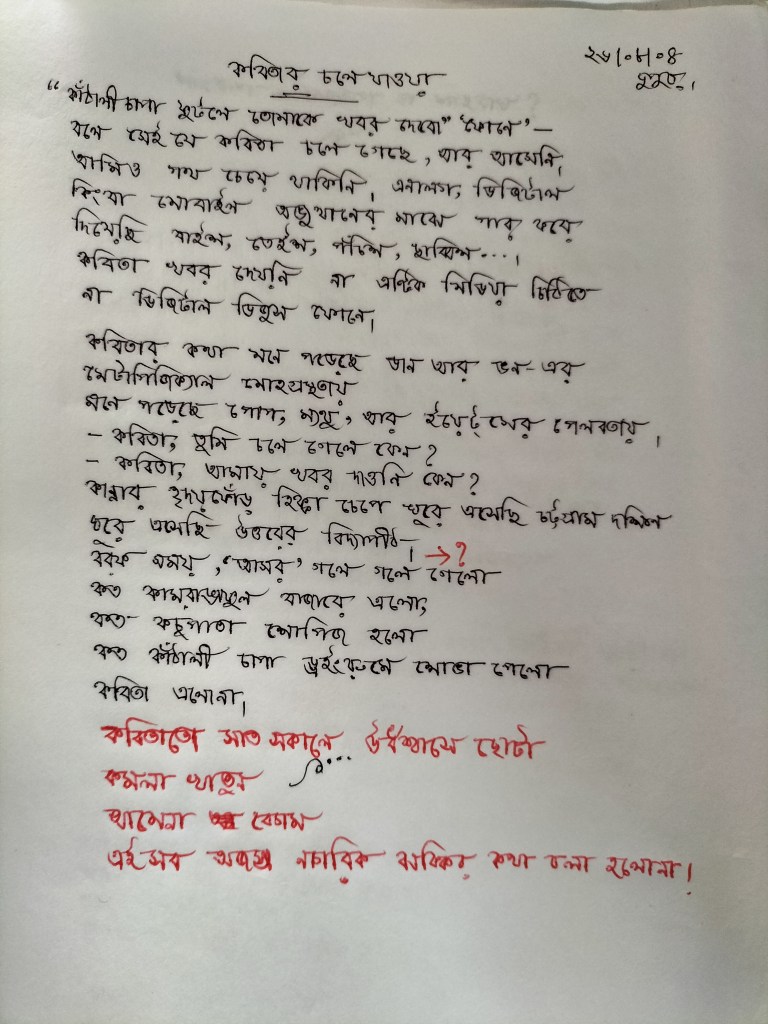 ২৬।০৮।০৪
কবিতার চলে যাওয়া
দুপুর।
“কাঁঠালী চাপা ফুটলে তোমাকে খবর দেবো” ‘ফোনে’ –
বলে সেই যে কবিতা চলে গেছে, আর আসেনি।
আমিও পথ চেয়ে থাকিনি। এনালগ, ডিজিটাল
কিংবা মোবাইল অভ্যুত্থানের মাঝে পার করে
দিয়েছি বাইশ, তেইশ, পঁচিশ, ছাব্বিশ...।
কবিতা খবর দেয়নি না এন্টিক মিডিয়া চিঠিতে
না ডিজিটাল ভিজুস ফোনে।
কবিতার কথা মনে পড়েছে জান আর ডন-এর
মেটাপিজিক্যাল মোহগ্রস্থতায়
মনে পড়েছে পোপ, ম্যাথু, আর ইয়েট্সের পেলবতায়।
– কবিতা, তুমি চলে গেলে কেন?
– কবিতা, আমায় খবর দাওনি কেন?
কান্নার হৃদয়ফোঁড় হিক্কা চেপে ঘুরে এসেছি চট্টগ্রাম দক্ষিন
ঘুরে এসেছি উত্তরের বিদ্যাপীঠ। → ?
বরফ সময়, ‘আসর’ গলে গলে গেলো
কত কামরাঙাফুল বাজারে এলো,
কত কচুপাতা শোপিজ হলো
কত কাঁঠালী চাপা ড্রইংরুমে শোভা পেলো
কবিতা এলোনা।
কবিতাতো সাত সকালে... উর্ধশ্বাসে ছোটা
কমলা খাতুন
আমেনা বেগম
এইসব অজস্র নচারিক কবিতার কথা বলা হলোনা।